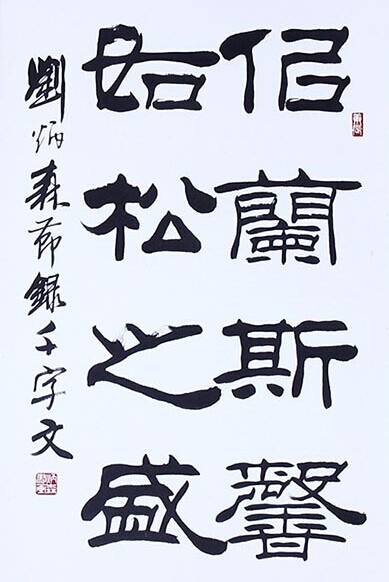 佀蘭斯馨
如松之盛
劉炳森節錄千字文